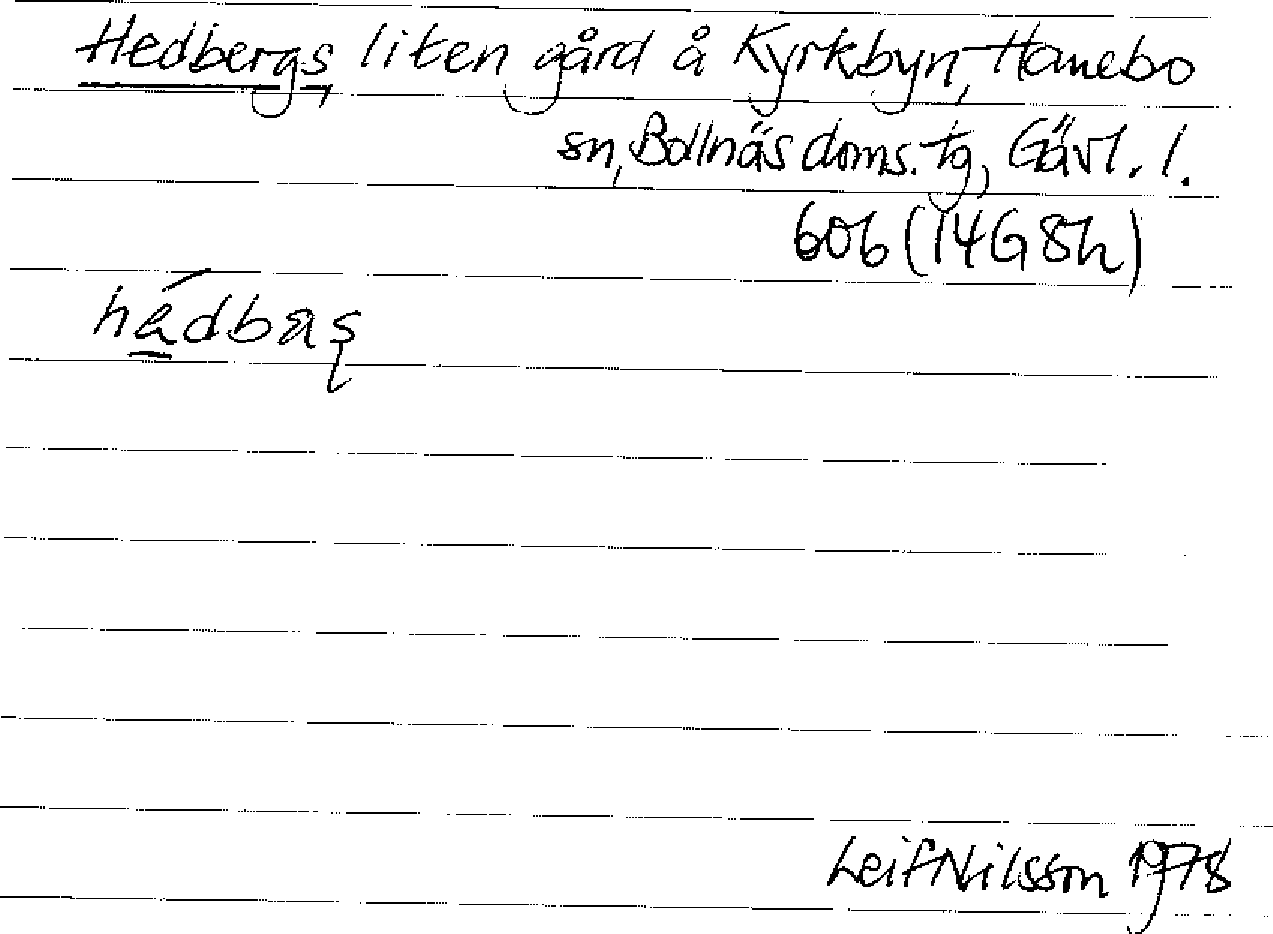 Hedbergs, liten gård å Kyrkbyn, Hanebo
sn, Bollnäs doms. tg, Gävl. l.
606 (14G 8h)
Leif Nilsson 1978